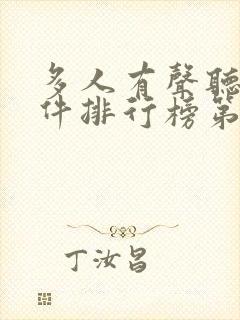 多人有聲聽
件排行榜第
丁汝昌